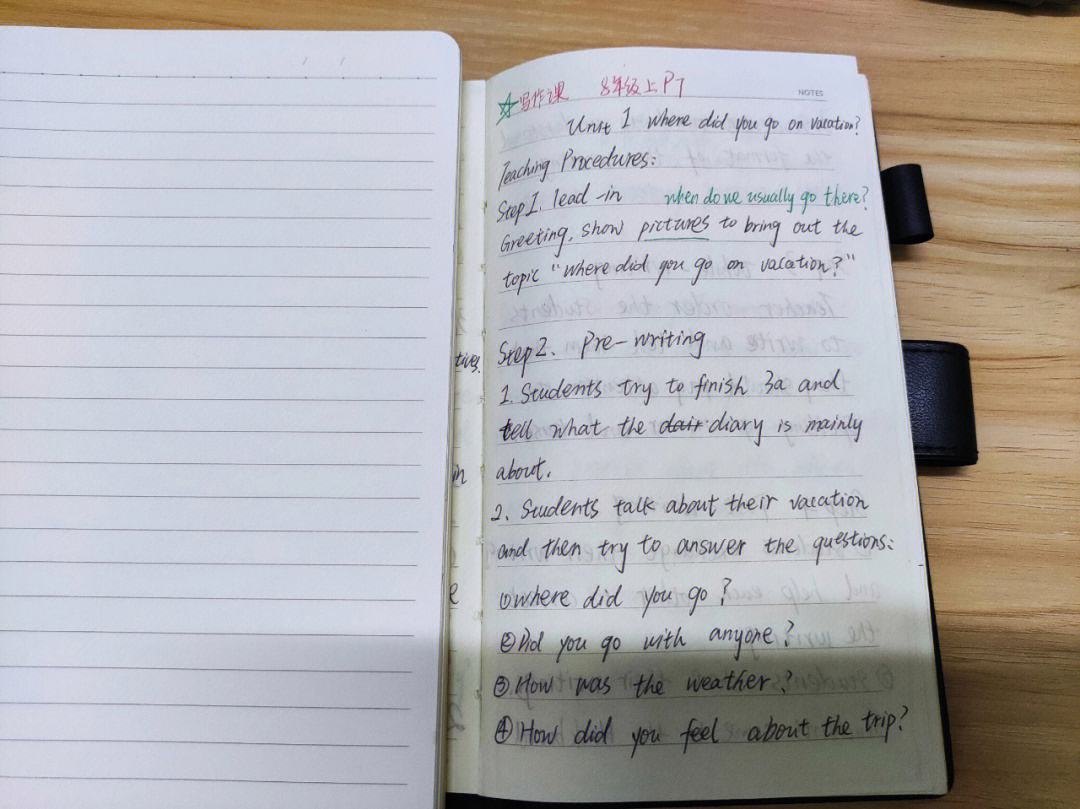 ☆写作课 8年级上P7
NOTES
Unit 1 where did you go on vacation?
Teaching Procedures:
Step1. lead-in when do we usually go there?
Greeting, show pictures to bring out the
topic "where did you go on vacation?"
Step2. Pre-writing
1. Students try to finish 3a and
tell what the dair diary is mainly
about.
2. Students talk about their vacation
and then try to answer the questions:
①where did you go?
②Did you go with anyone?
③How was the weather?
④How did you feel about the trip?
tives.
in
e